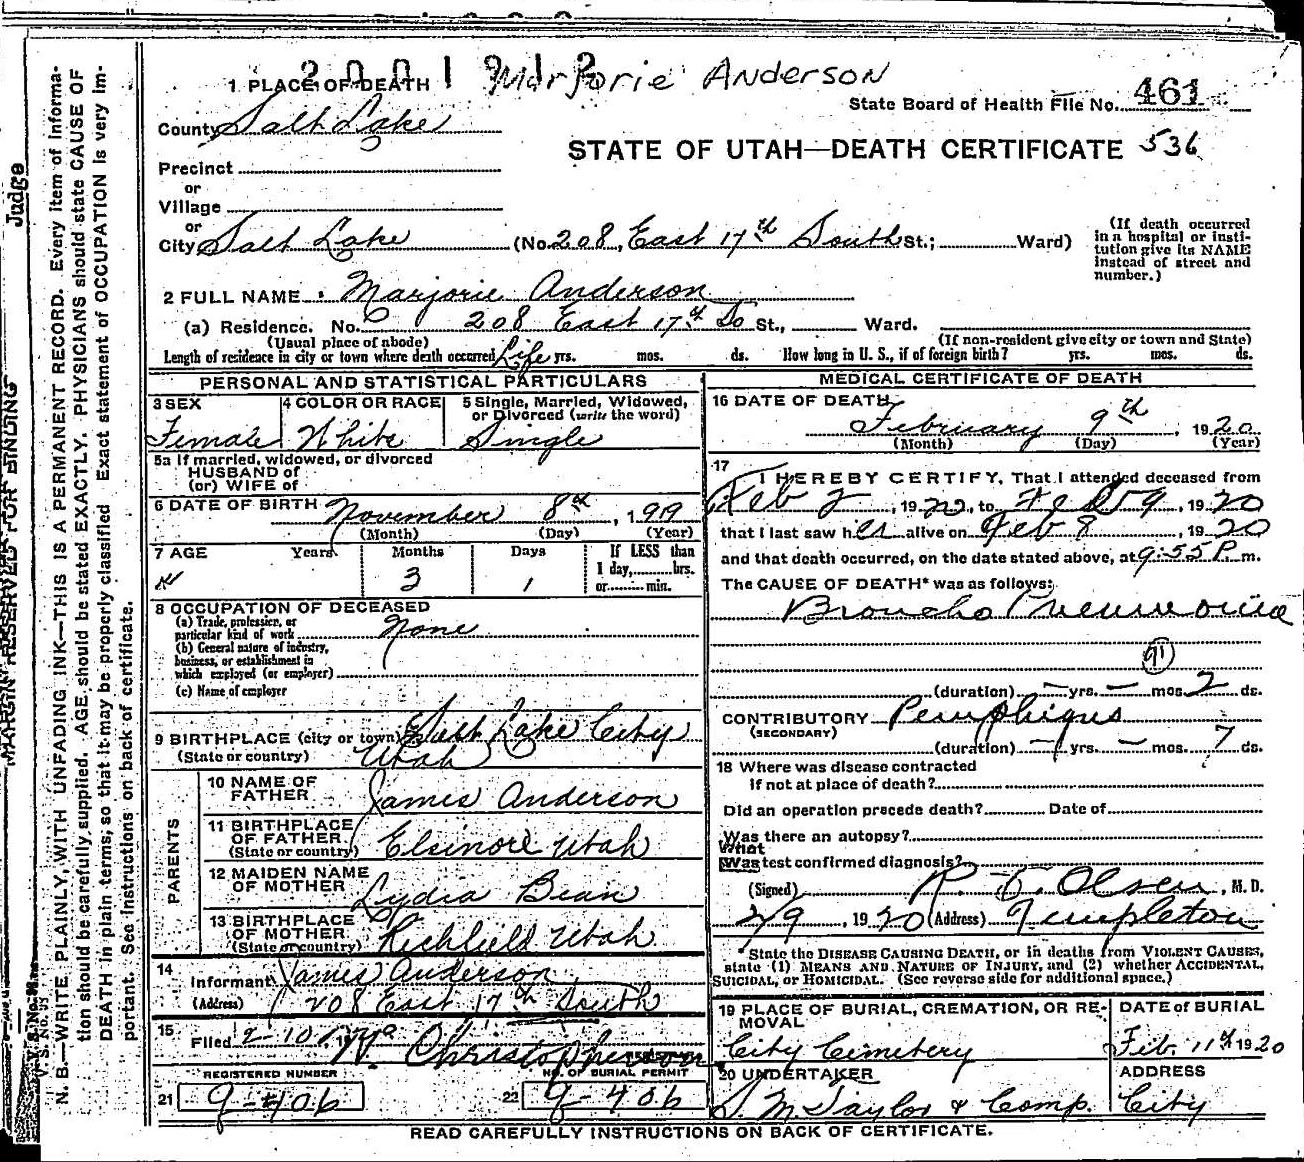 2001912 Marjorie Anderson
1 PLACE OF DEATH
State Board of Health File No. 461
County Salt Lake
STATE OF UTAH—DEATH CERTIFICATE 536
Precinct
or
Village
or
City Salt Lake (No. 208, East 17th South St.; Ward)
(If death occurred in a hospital or insti-
tution give its NAME
instead of street and
number.)
2 FULL NAME Marjorie Anderson
(a) Residence. No. 208 East 17th So St., Ward.
(Usual place of abode) (If non-resident give city or town and State)
Length of residence in city or town where death occurred Life yrs. mos. ds. How long in U. S., if of foreign birth? yrs. mos. ds.
PERSONAL AND STATISTICAL PARTICULARS
3 SEX 4 COLOR OR RACE 5 Single, Married, Widowed,
or Divorced (write the word)
Female White Single
5a If married, widowed, or divorced
HUSBAND of
(or) WIFE of
6 DATE OF BIRTH November 8th, 1919
(Month) (Day) (Year)
7 AGE Years Months Days If LESS than
1 day,......hrs.
3 1 or......min.
8 OCCUPATION OF DECEASED
(a) Trade, profession, or
particular kind of work None
(b) General nature of industry,
business, or establishment in
which employed (or employer)
(c) Name of employer
9 BIRTHPLACE (city or town) Salt Lake City
(State or country) Utah
PARENTS
10 NAME OF
FATHER James Anderson
11 BIRTHPLACE
OF FATHER Elsinore Utah
(State or country)
12 MAIDEN NAME
OF MOTHER Lydia Bean
13 BIRTHPLACE
OF MOTHER Richfield Utah
(State or country)
14
Informant James Anderson
(Address) 208 East 17th South
15
Filed 2-10, 19 Christopherson
REGISTERED NUMBER NO. OF BURIAL PERMIT
21 9-406 22 9-406
MEDICAL CERTIFICATE OF DEATH
16 DATE OF DEATH
February 9th, 1920
(Month) (Day) (Year)
17
I HEREBY CERTIFY, That I attended deceased from
Feb 2, 1920, to Feb 9, 1920
that I last saw her alive on Feb 8, 1920
and that death occurred, on the date stated above, at 9:55 P. m.
The CAUSE OF DEATH* was as follows:
Broncho Pneumonia
91
(duration) — yrs. — mos. 2 ds.
CONTRIBUTORY Pemphigus
(SECONDARY)
(duration) — yrs. — mos. 7 ds.
18 Where was disease contracted
if not at place of death?
Did an operation precede death? Date of
Was there an autopsy?
What
Was test confirmed diagnosis?
(Signed) R. T. Olsen, M. D.
2/9, 1920 (Address) Templeton
*State the DISEASE CAUSING DEATH, or in deaths from VIOLENT CAUSES,
state (1) MEANS AND NATURE OF INJURY, and (2) whether ACCIDENTAL,
SUICIDAL, or HOMICIDAL. (See reverse side for additional space.)
19 PLACE OF BURIAL, CREMATION, OR RE-
MOVAL
DATE OF BURIAL
City Cemetery Feb. 11th 1920
20 UNDERTAKER ADDRESS
S. M. Taylor & Comp. City
READ CAREFULLY INSTRUCTIONS ON BACK OF CERTIFICATE.
Judge
MARGIN RESERVED FOR BINDING
N. B.—WRITE PLAINLY, WITH UNFADING INK—THIS IS A PERMANENT RECORD. Every item of informa-
tion should be carefully supplied. AGE should be stated EXACTLY. PHYSICIANS should state CAUSE OF
DEATH in plain terms, so that it may be properly classified. Exact statement of OCCUPATION is very im-
portant. See instructions on back of certificate.